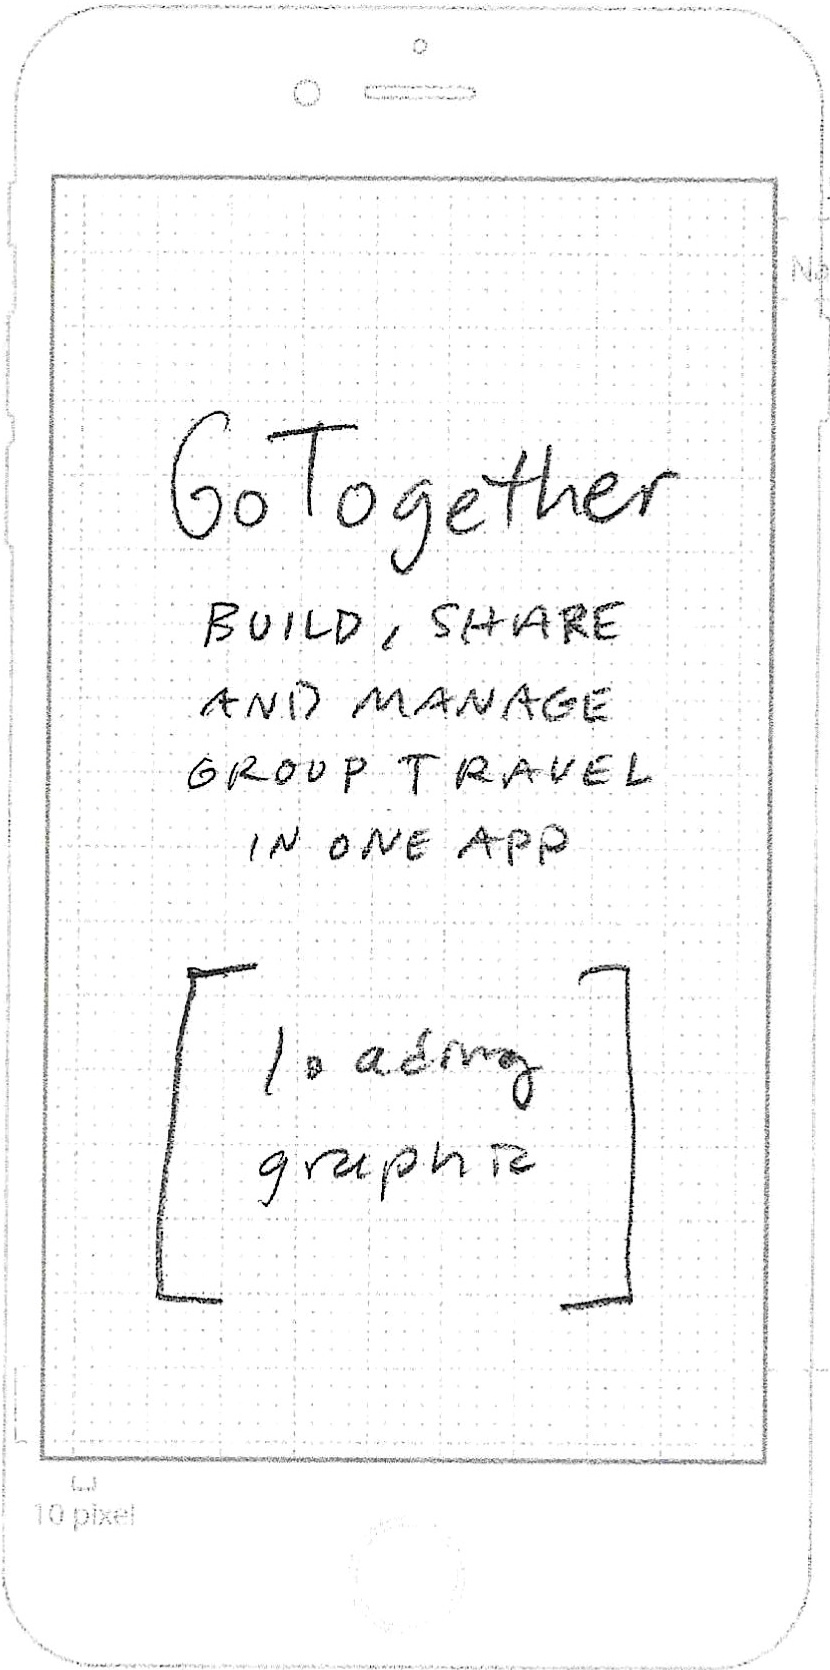 Go Together
BUILD, SHARE
AND MANAGE
GROUP TRAVEL
IN ONE APP
loading
graphic
10 pixel